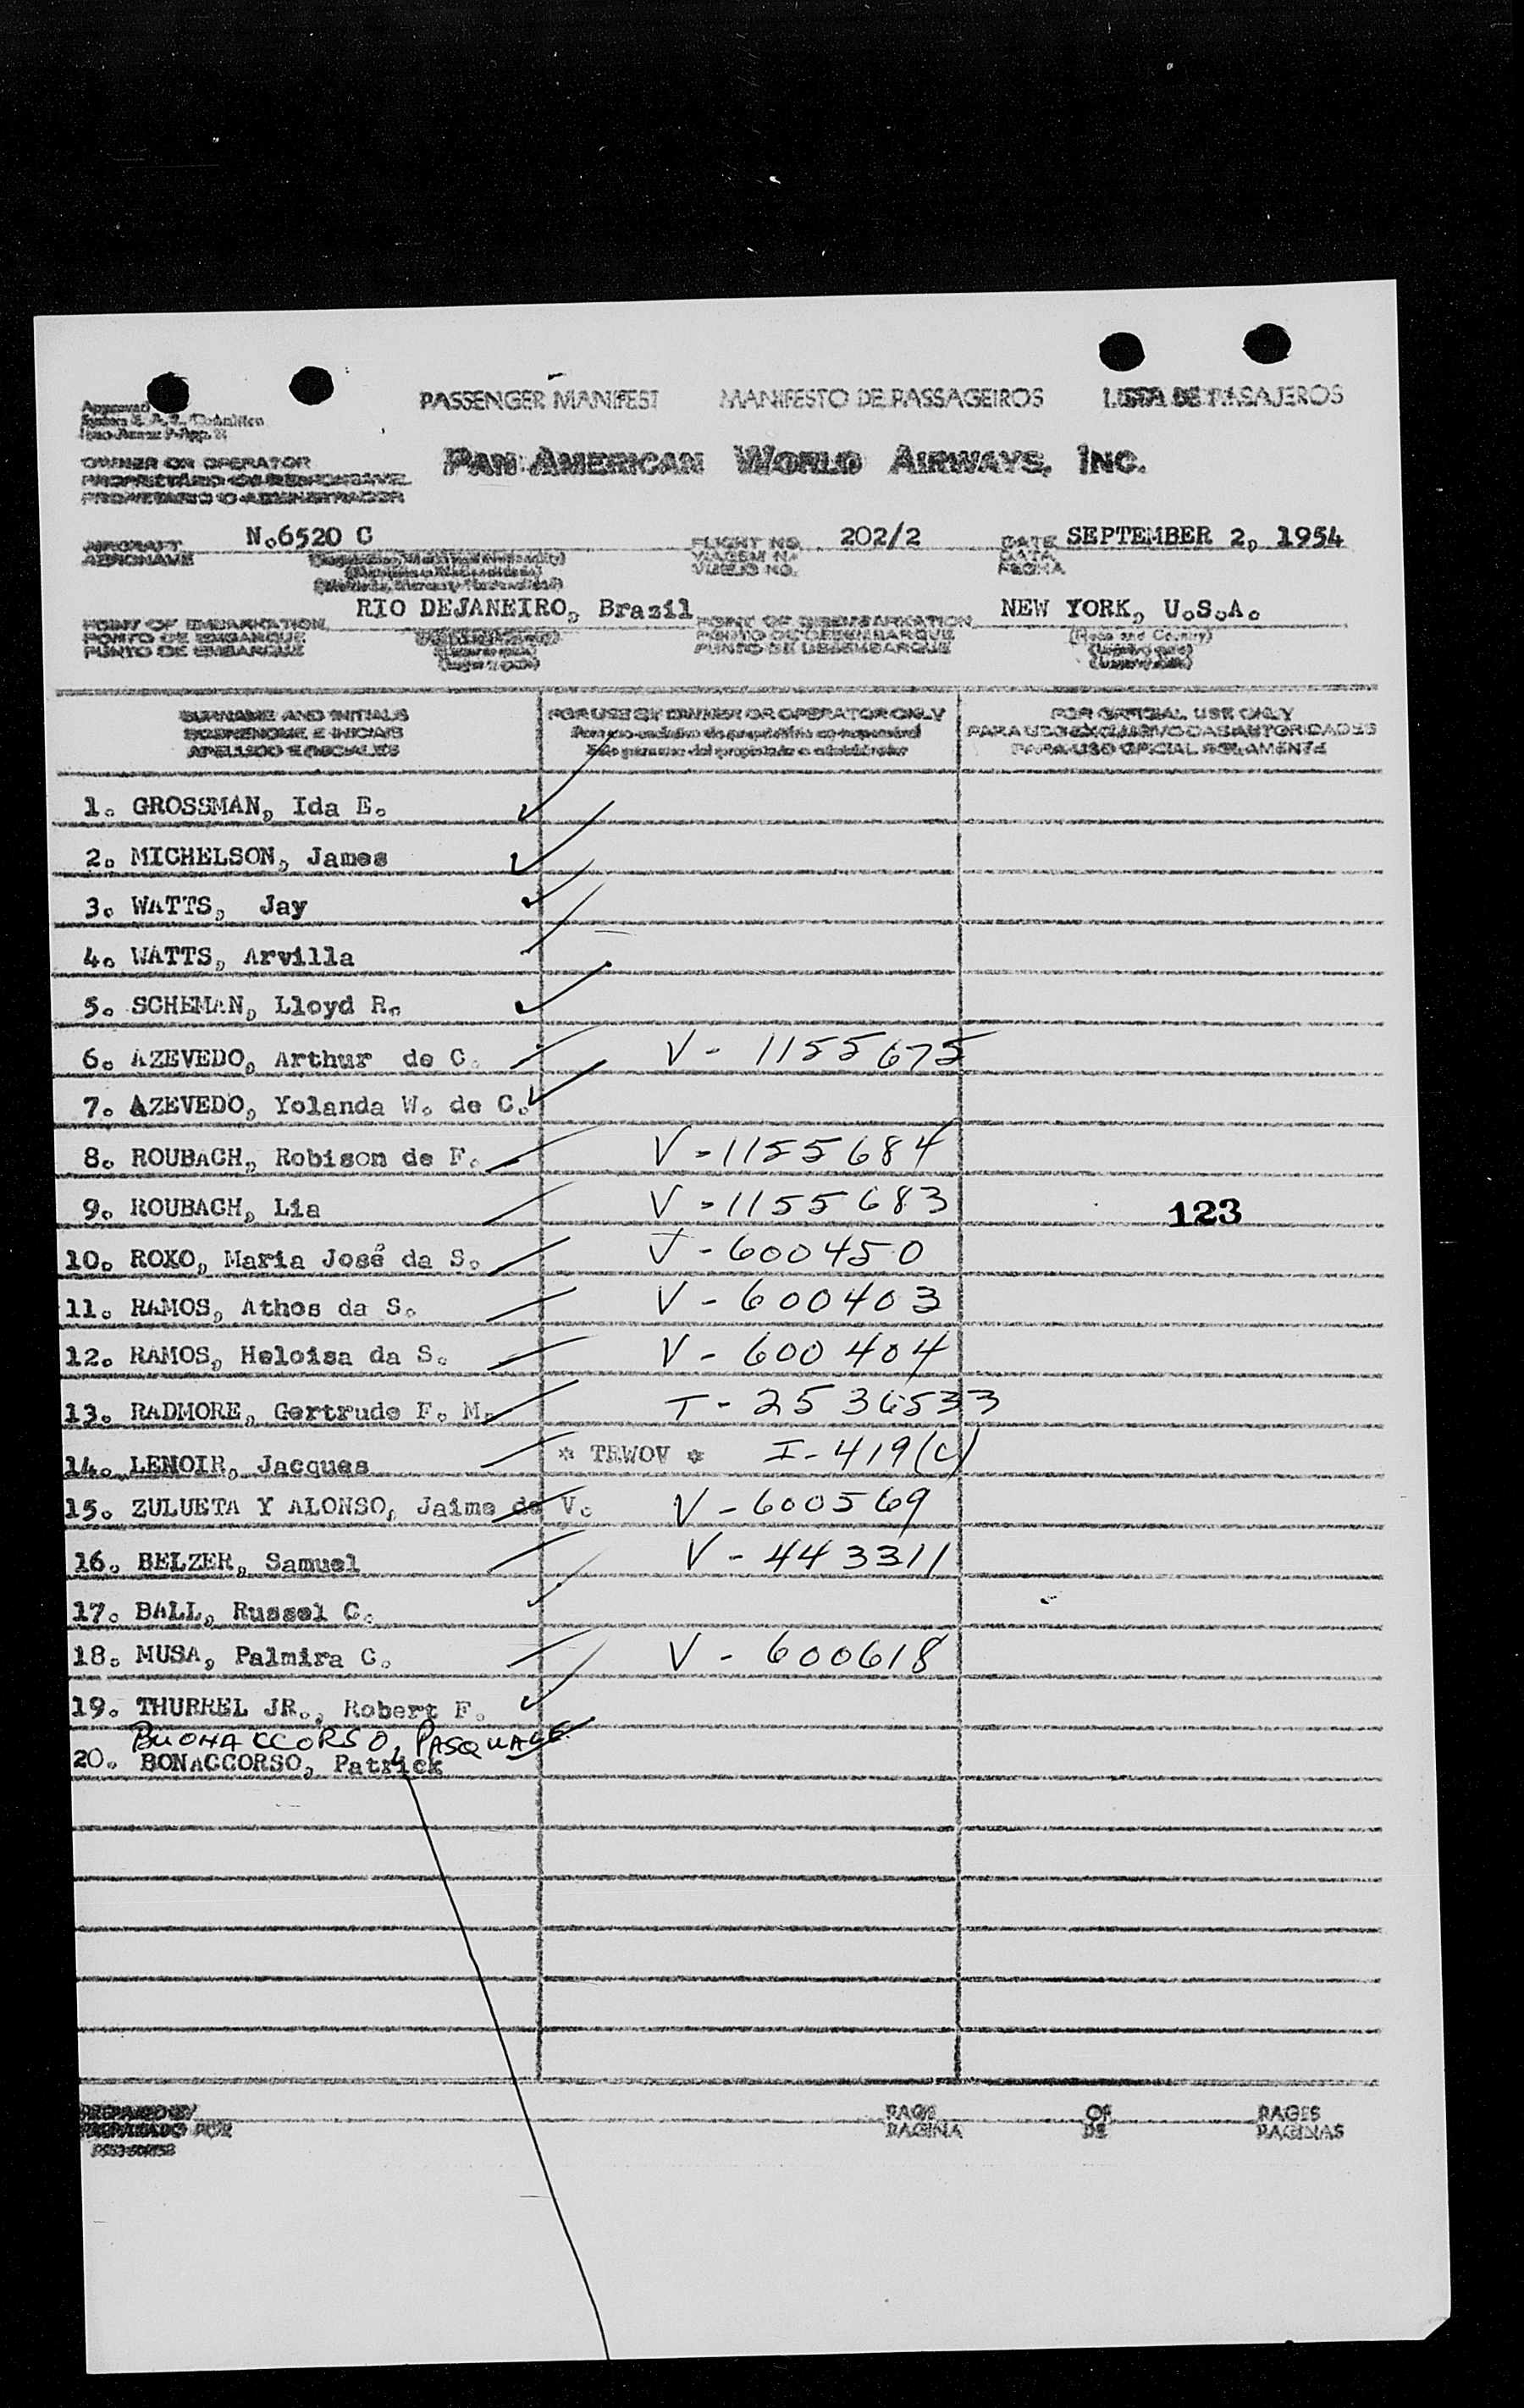 PASSENGER MANIFEST MANIFESTO DE PASSAGEIROS LISTA DE PASAJEROS
Approved
OWNER OR OPERATOR
PAN AMERICAN WORLD AIRWAYS, INC.
PROPRIETARIO OU RESPONSAVEL
PROPIETARIO O ADMINISTRADOR
AIRCRAFT N.6520 C FLIGHT NO. 202/2 DATE SEPTEMBER 2, 1954
AERONAVE VIAGEM N. DATA
VUELO NO. FECHA
POINT OF EMBARKATION RIO DEJANEIRO, Brazil POINT OF DISEMBARKATION NEW YORK, U.S.A.
PONTO DE EMBARQUE PONTO DE DESEMBARQUE (Place and Country)
PUNTO DE EMBARQUE PUNTO DE DESEMBARQUE
SURNAME AND INITIALS FOR USE BY OWNER OR OPERATOR ONLY FOR OFFICIAL USE ONLY
SOBRENOME E INICIAIS Para uso exclusivo do proprietário ou responsável PARA USO EXCLUSIVO DAS AUTORIDADES
APELLIDO E INICIALES Sólo para uso del propietario o administrador PARA USO OFICIAL SOLAMENTE
1. GROSSMAN, Ida E.
2. MICHELSON, James
3. WATTS, Jay
4. WATTS, Arvilla
5. SCHEMAN, Lloyd R.
6. AZEVEDO, Arthur de C. V - 1155675
7. AZEVEDO, Yolanda W. de C.
8. ROUBACH, Robison de F. V - 1155684
9. ROUBACH, Lia V - 1155683 123
10. ROXO, Maria José da S. V - 600450
11. RAMOS, Athos da S. V - 600403
12. RAMOS, Heloisa da S. V - 600404
13. RADMORE, Gertrude F. M. T - 2536533
14. LENOIR, Jacques * TRWOV * I - 419(c)
15. ZULUETA Y ALONSO, Jaime de V. V - 600569
16. BELZER, Samuel V - 443311
17. BALL, Russel C.
18. MUSA, Palmira C. V - 600618
19. THURREL JR., Robert F.
BUONACCORSO, PASQUALE
20. BONACCORSO, Patrick
PREPARED BY PAGE OF PAGES
PREPARADO POR PAGINA DE PAGINAS